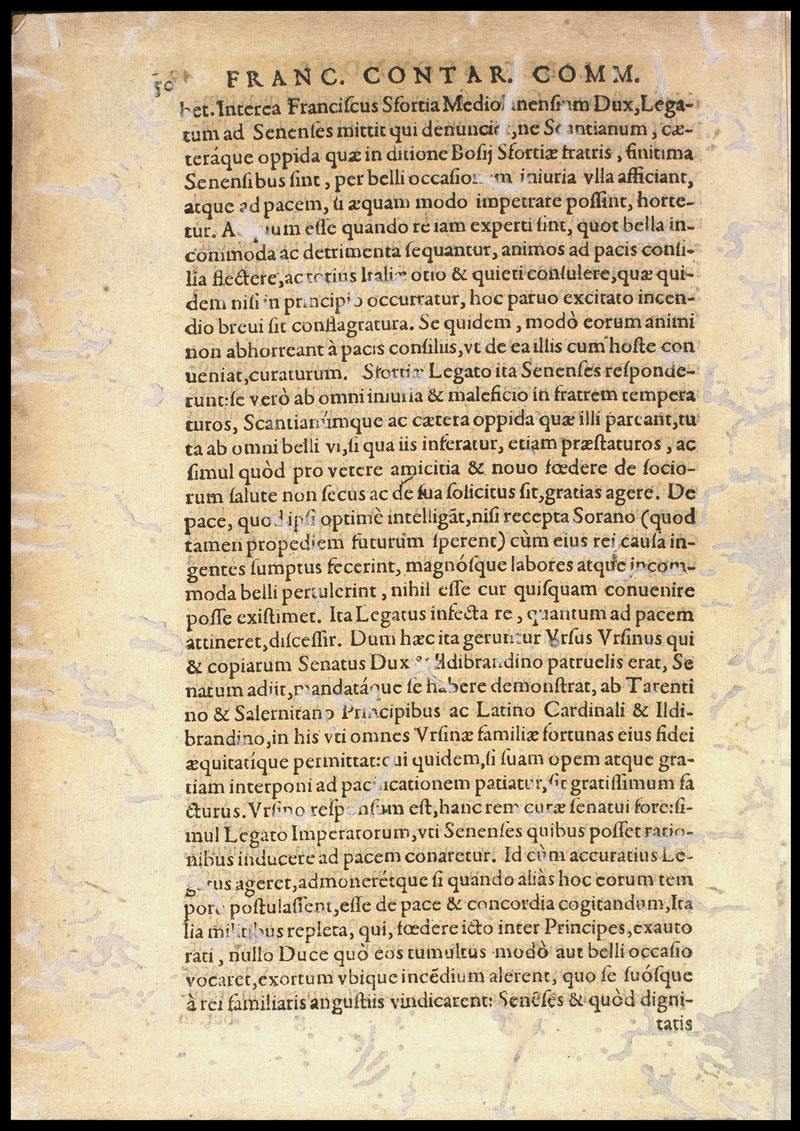 50 FRANC. CONTAR. COMM.
bet. Interea Franciſcus Sfortia Mediolanenſium Dux, Lega-
tum ad Senenſes mittit qui denunciet, ne Scantianum, cæ-
teráque oppida quæ in ditione Boſij Sfortiæ fratris, finitima
Senenſibus ſint, per belli occaſionem iniuria vlla afficiant,
atque ad pacem, ſi æquam modo impetrare poſſint, horte-
tur. eſſe quando re iam experti ſint, quot bella in-
commoda ac detrimenta ſequantur, animos ad pacis conſi-
lia flectere, ac totius Italiæ otio & quieti conſulere, quæ qui-
dem niſi in principio occurratur, hoc paruo excitato incen-
dio breui ſit conflagratura. Se quidem, modò eorum animi
non abhorreant à pacis conſiliis, vt de ea illis cum hoſte con
ueniat, curaturum. Sfortiæ Legato ita Senenſes reſponde-
runt: ſe verò ab omni iniuria & maleficio in fratrem tempera
turos, Scantianúmque ac cætera oppida quæ illi pareant, tu
ta ab omni belli vi, ſi qua iis inferatur, etiam præſtaturos, ac
ſimul quòd pro vetere amicitia & nouo fœdere de ſocio-
rum ſalute non ſecus ac de ſua ſolicitus ſit, gratias agere. De
pace, quod ipſi optimè intelligāt, niſi recepta Sorano (quod
tamen propediem futurum ſperent) cùm eius rei cauſa in-
gentes ſumptus fecerint, magnóſque labores atque incom-
moda belli pertulerint, nihil eſſe cur quiſquam conuenire
poſſe exiſtimet. Ita Legatus infecta re, quantum ad pacem
attineret, diſceſſit. Dum hæc ita geruntur Vrſus Vrſinus qui
& copiarum Senatus Dux & Ildibrandino patruelis erat, Se
natum adiit, mandatáque ſe habere demonſtrat, ab Tarenti
no & Salernitano Principibus ac Latino Cardinali & Ildi-
brandino, in his vti omnes Vrſinæ familiæ fortunas eius fidei
æquitatíque permittat: cui quidem, ſi ſuam opem atque gra-
tiam interponi ad pacificationem patiatur, ſit gratiſſimum fa
cturus. Vrſino reſponſum eſt, hanc rem curæ ſenatui fore: ſi-
mul Legato Imperatorum, vti Senenſes quibus poſſet ratio-
nibus inducere ad pacem conaretur. Id cùm accuratius Le-
gatus ageret, admonerétque ſi quando aliàs hoc eorum tem
pore poſtulaſſent, eſſe de pace & concordia cogitandum, Ita
lia militibus repleta, qui, fœdere icto inter Principes, exauto
rati, nullo Duce quò eos tumultus modò aut belli occaſio
vocaret, exortum vbique incēdium alerent, quo ſe ſuóſque
à rei familiaris anguſtiis vindicarent: Senēſes & quòd digni-
tatis